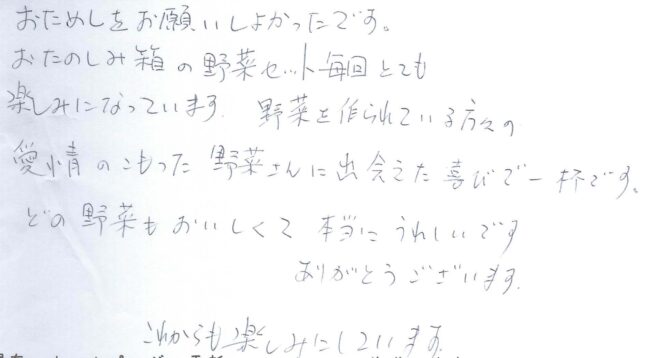 おためしをお願いしよかったです。
おたのしみ箱の野菜セット毎回とても
楽しみになっています。野菜を作られている方々の
愛情のこもった野菜さんに出会えた喜びで一杯です。
どの野菜もおいしくて本当にうれしいです
ありがとうございます。
これからも楽しみにしています。